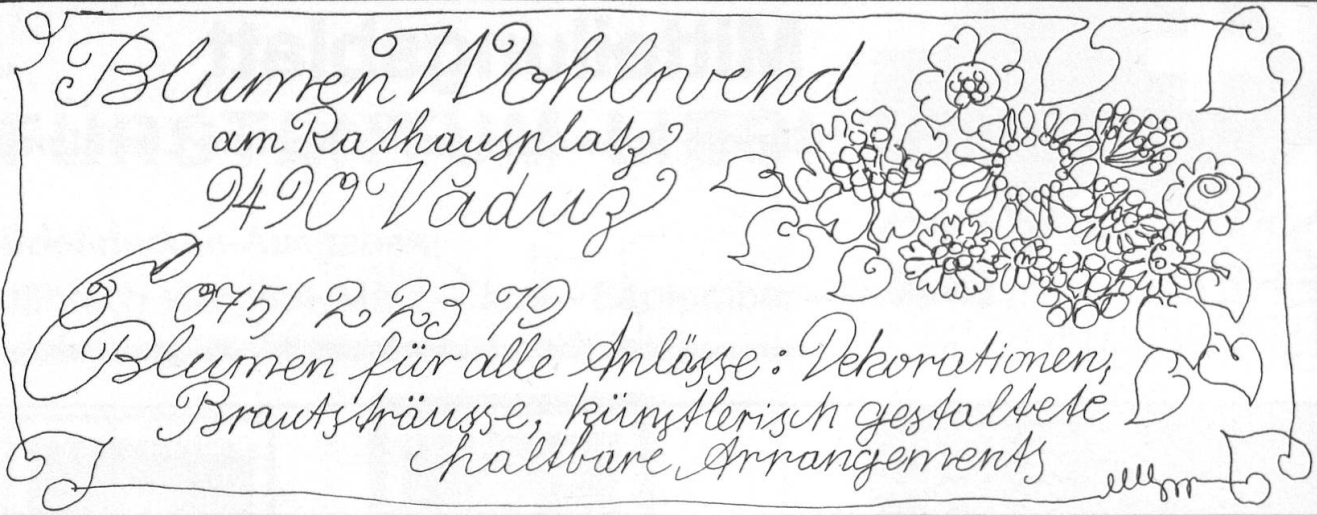 Blumen Wohlwend
am Rathausplatz
9490 Vaduz
075 2 23 79
Blumen für alle Anlässe: Dekorationen,
Brautsträusse, künstlerisch gestaltete
haltbare Arrangements